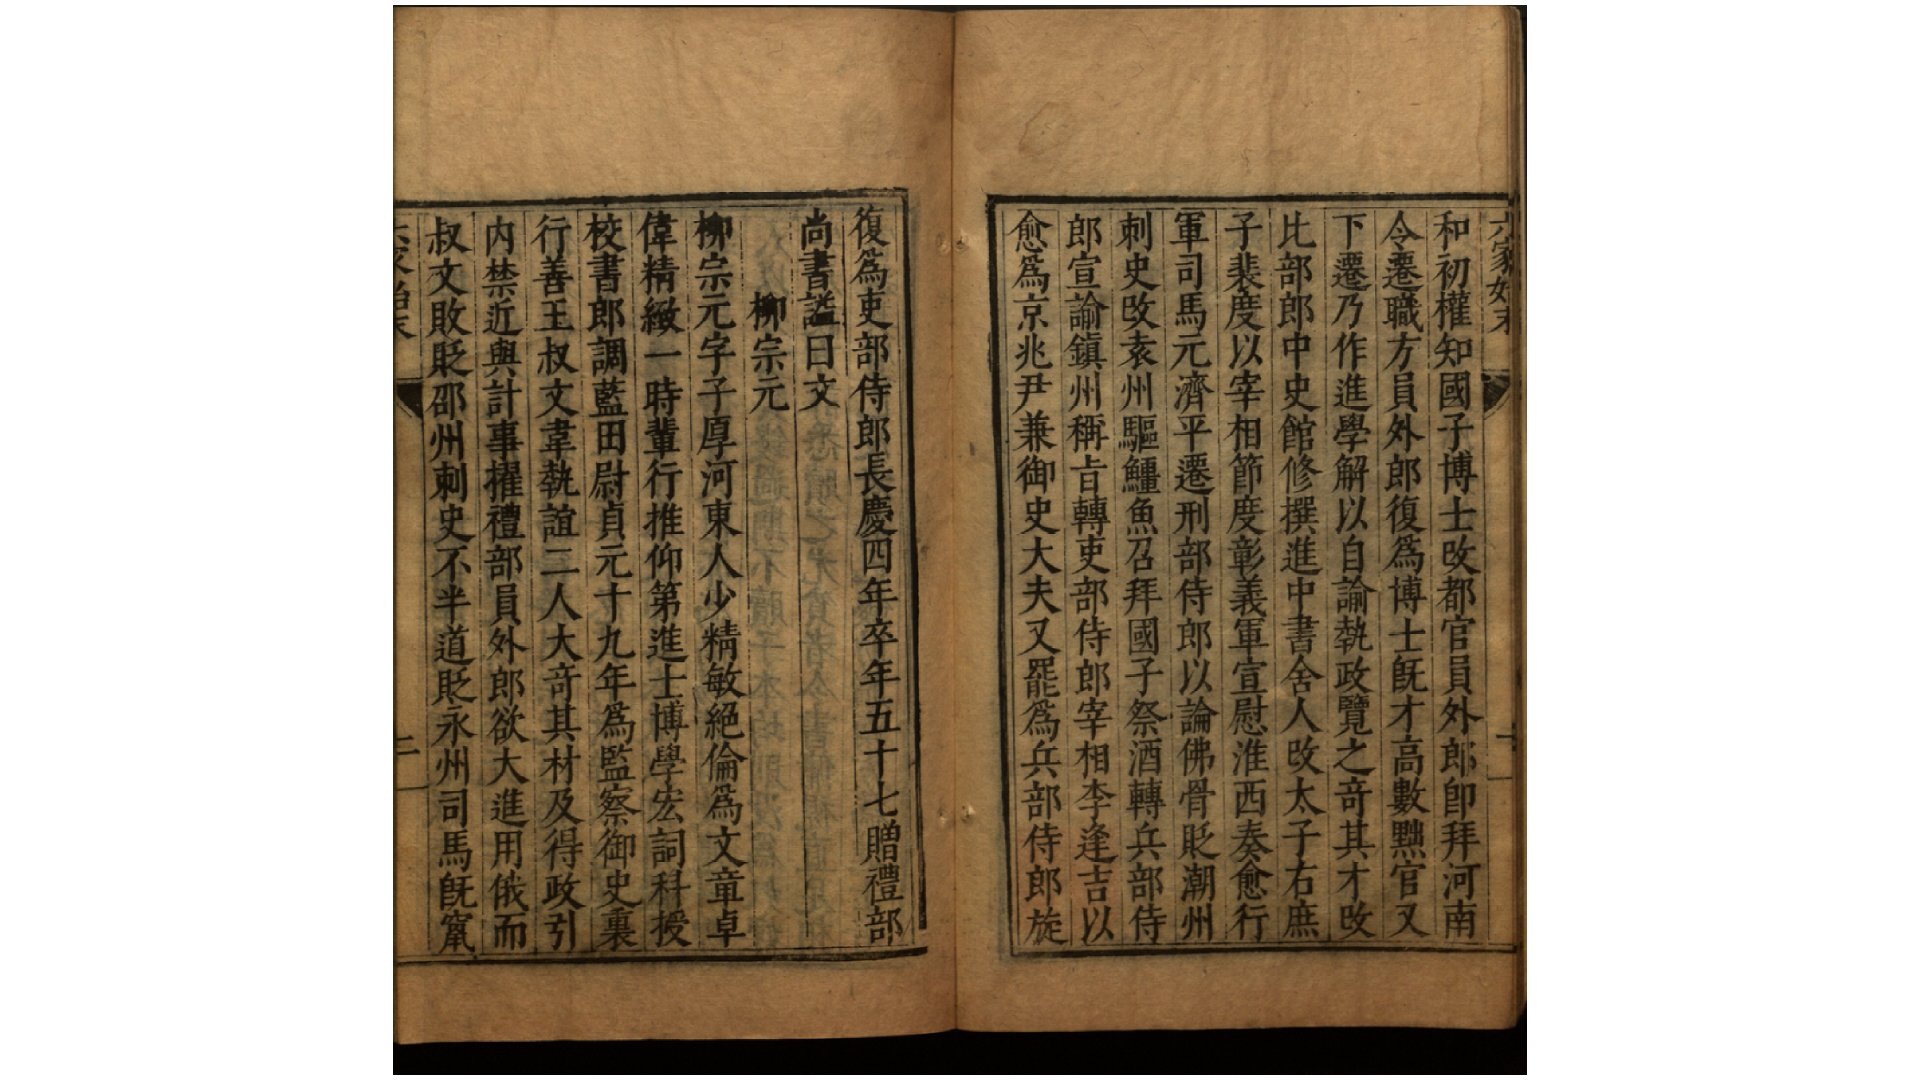 六家始末
和初權知國子博士改都官員外郎卽拜河南
令遷職方員外郎復爲博士旣才高數黜官又
下遷乃作進學解以自諭執政覽之竒其才改
比部郎中史館修撰進中書舍人改太子右庶
子裴度以宰相節度彰義軍宣慰淮西奏愈行
軍司馬元濟平遷刑部侍郎以論佛骨貶潮州
刺史改袁州驅鱷魚召拜國子祭酒轉兵部侍
郎宣諭鎮州稱旨轉吏部侍郎宰相李逢吉以
愈爲京兆尹兼御史大夫又罷爲兵部侍郎旋
復爲吏部侍郎長慶四年卒年五十七贈禮部
尚書諡曰文
柳宗元
柳宗元字子厚河東人少精敏絕倫爲文章卓
偉精緻一時輩行推仰第進士博學宏詞科授
校書郎調藍田尉貞元十九年爲監察御史裏
行善王叔文韋執誼二人大竒其材及得政引
内禁近與計事擢禮部員外郎欲大進用俄而
叔文敗貶邵州刺史不半道貶永州司馬旣竄
二